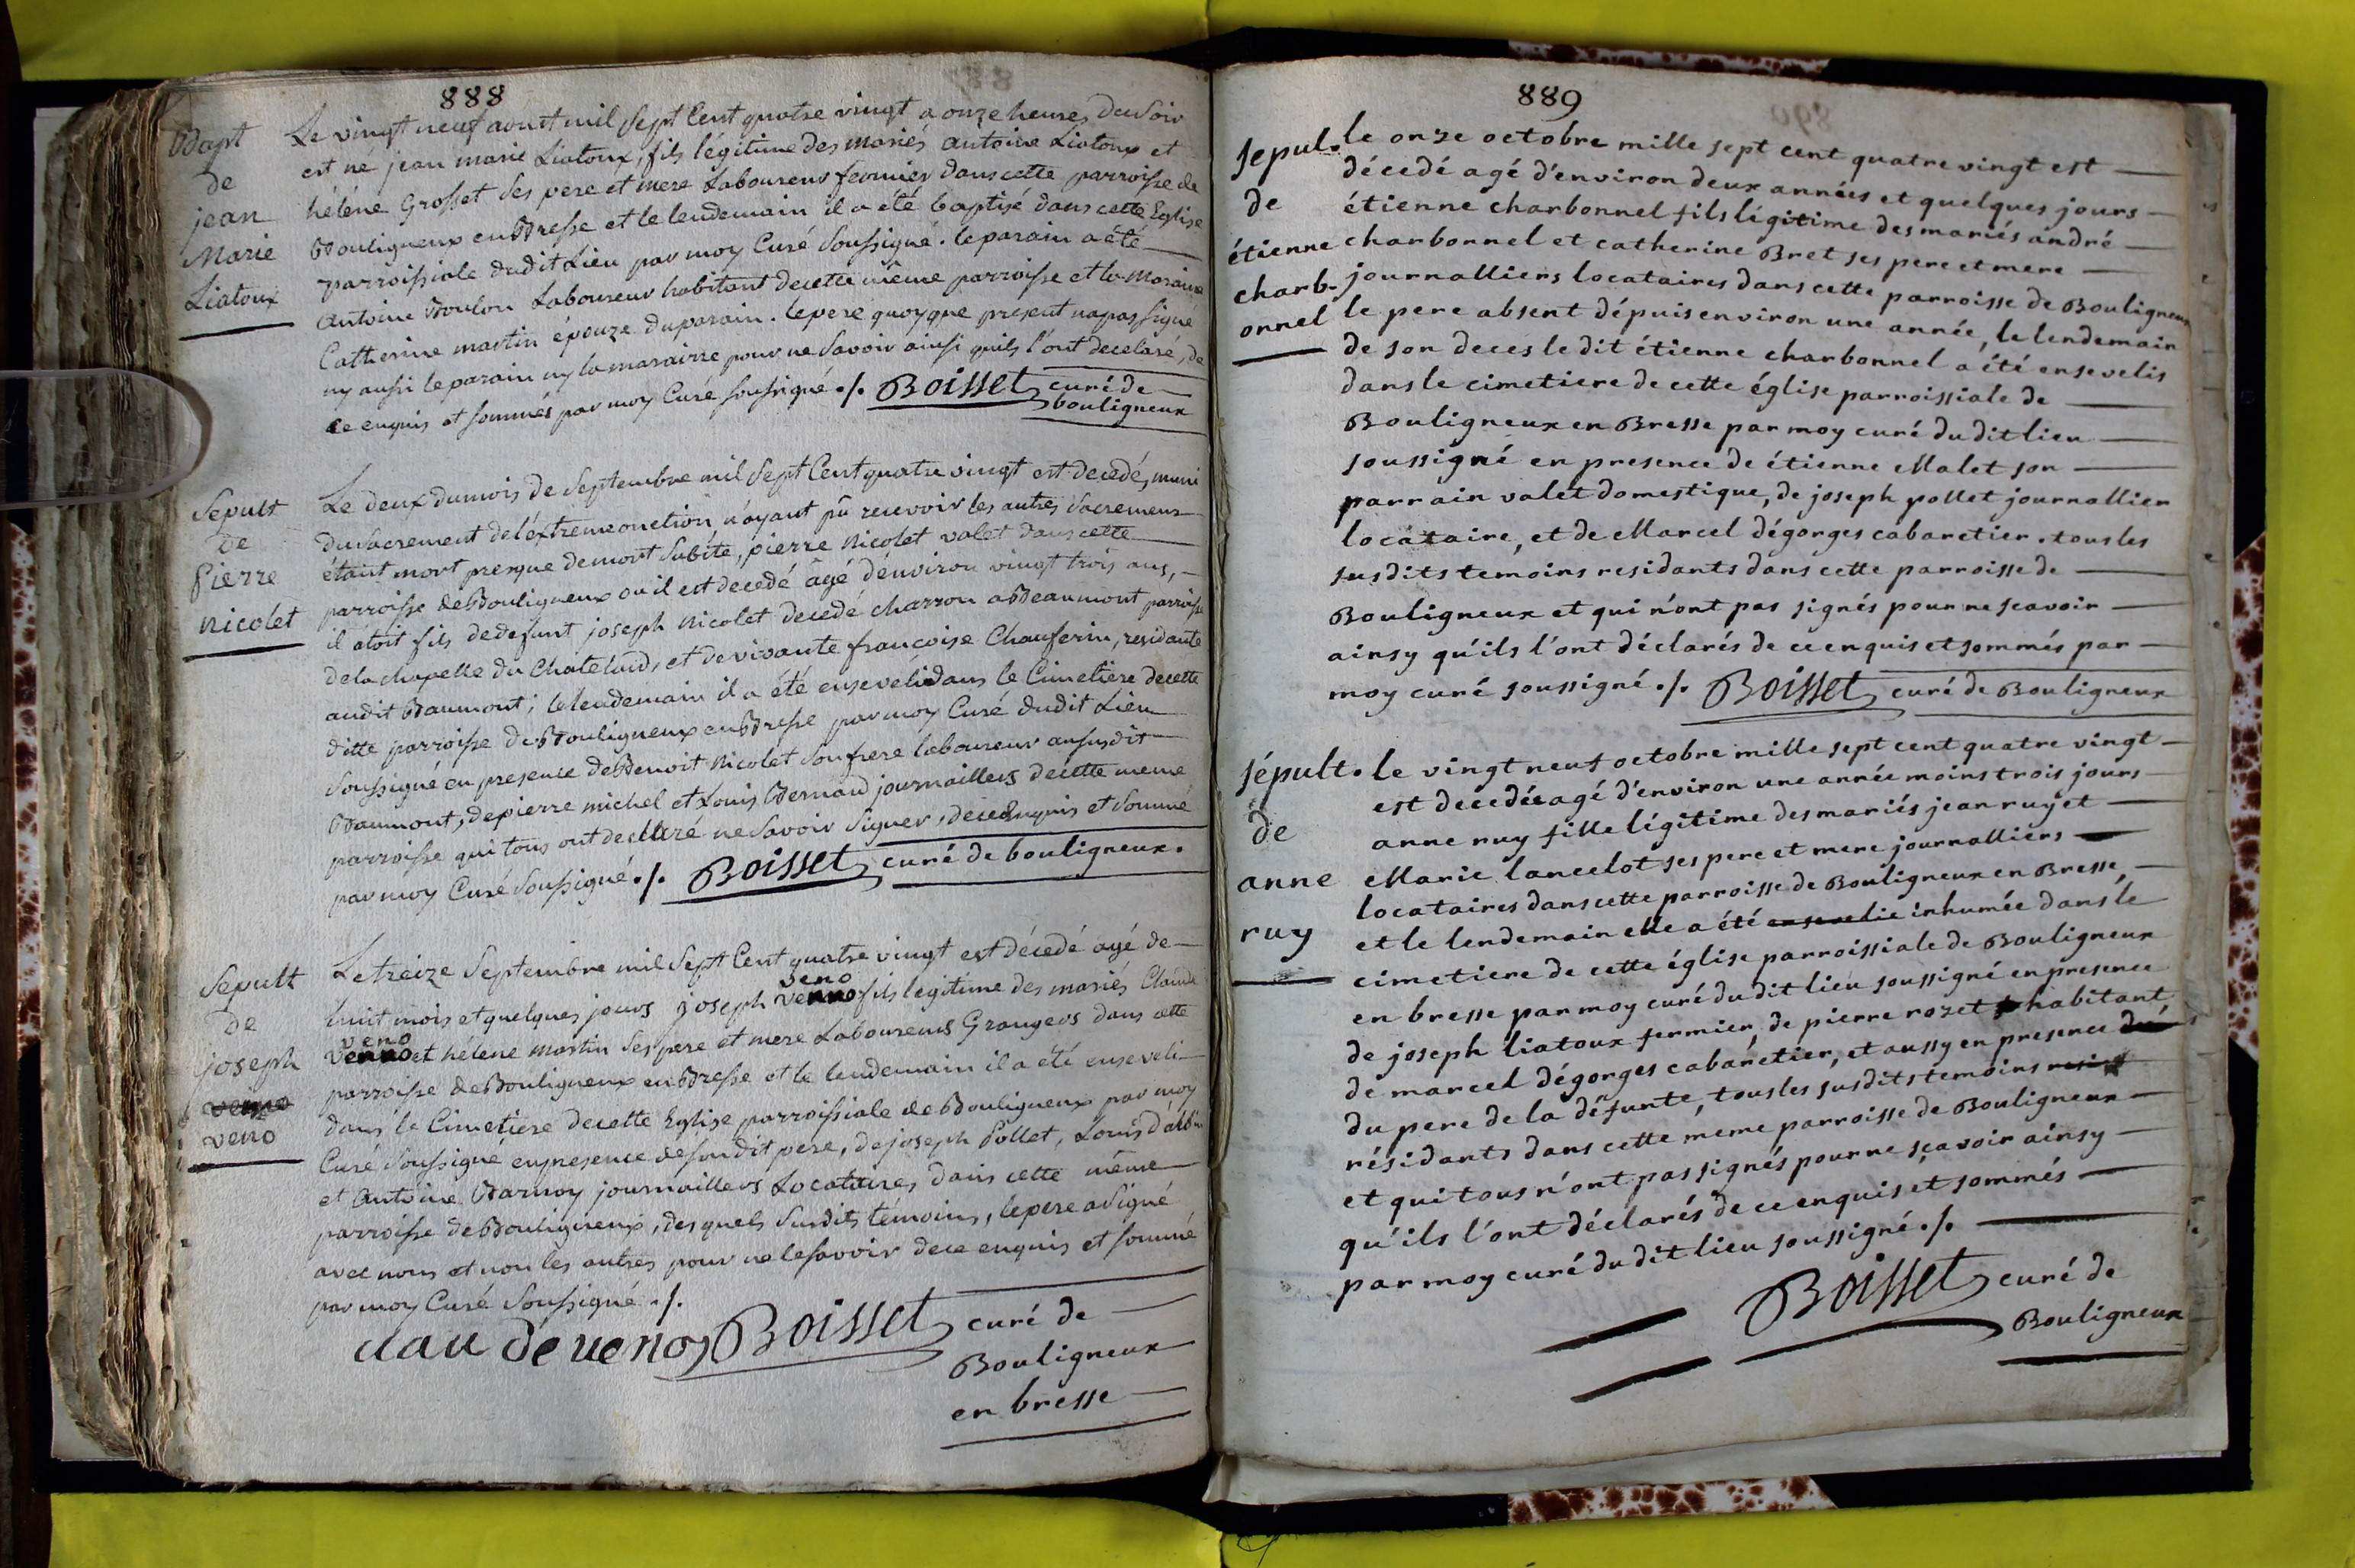 888
Bapt
de
jean
Marie
Liatoux
Le vingt neuf aoust mil sept Cent quatre vingt a onze heures du Soir
est né jean marie Liatoux, fils légitime des mariés antoine Liatoux et
héléne Grosset Ses pere et mere Laboureur fermier dans cette parroisse de
Bouligneux en Bresse et le lendemain il a été baptisé dans cette Eglise
parroissiale dudit Lieu par moy Curé Soussigné. le parain a été
antoine Boulon Laboureur habitant de cette même parroisse et la Maraine
Catherine martin épouze du parain. le pere quoyque present n'a pas signé
ny aussi le parain ny la marainne pour ne Savoir ainsi quils l'ont decelaré, de
ce enquis et sommés par moy Curé soussigné ./. Boisset curé de
bouligneux
Sepult
de
Pierre
nicolet
Le deux du mois de Septembre mil Sept Cent quatre vingt est decedé, muni
du Sacrement de l'éxtreme onction n'ayant pû recevoir les autres Sacremens
étant mort presque de mort Subite, pierre nicolet valet dans cette
parroisse de Bouligneux ou il est decedé âgé d'environ vingt trois ans,
il étoit fils de defunt joseph nicolet decedé charron a Beaumont parroisse
de la chapelle du Chatelard, et de vivante françoise Chauferin, residante
audit Baumont; le lendemain il a été enseveli dans le Cimetiere de cette
ditte parroisse de Bouligneux en Bresse par moy Curé dudit Lieu
Soussigné en presence de Benoit Nicolet Son frere laboureur au susdit
Baumont, de pierre michel et Louis Bernard journaillers de cette meme
parroisse qui tous ont decleré ne Savoir Signer, de ce Enquis et Sommé
par moy Curé Soussigné ./. Boisset curé de bouligneux.
Sepult
de
joseph
veno
Le treize Septembre mil Sept Cent quatre vingt est décedé agé de
veno
huit mois et quelques jours joseph fils legitime des mariés Claude
veno
et hélene martin Ses pere et mere Laboureurs Grangers dans cette
parroisse de Bouligneux en Bresse et le lendemain il a été enseveli
dans le Cimetiere de cette Eglise parroissiale de Bouligneux par moy
Curé Soussigné en presence de Son dit pere, de joseph Pollet, Louis
et antoine Barnoy journaillers Locataires dans cette même
parroisse de Bouligneux, des quels Susdits témoins, le pere a Signé
avec nous et non les autres pour ne le savoir de ce enquis et sommé
par moy Curé Soussigné ./.
clau de veno Boisset curé de
Bouligneux
en bresse
889
sepul.
de
étienne
charb-
onnel
le onze octobre mille sept cent quatre vingt est
décedé agé d'environ deux années et quelques jours
étienne charbonnel fils légitime des mariés andré
charbonnel et catherine Bret ses pere et mere
journalliers locataires dans cette parroisse de Bouligneux
le pere absent dépuis environ une année, le lendemain
de son deces le dit étienne charbonnel a été ensevelis
dans le cimetiere de cette église parroissiale de
Bouligneux en Bresse par moy curé du dit lieu
soussigné en presence de étienne Malet son
parrain valet domestique, de joseph pollet journallier
locataire, et de Marcel dégorges cabaretier. tous les
susdits temoins residants dans cette parroisse de
Bouligneux et qui n'ont pas signés pour ne scavoir
ainsy qu'ils l'ont déclarés de ce enquis et sommés par
moy curé soussigné ./. Boisset curé de Bouligneux
sépult.
de
anne
ruy
le vingt neuf octobre mille sept cent quatre vingt
est decedée agé d'environ une année moins trois jours
anne ruy fille légitime des mariés jean ruy et
Marie lancelot ses pere et mere journalliers
locataires dans cette parroisse de Bouligneux en Bresse,
et le lendemain elle a été ensevelie inhumée dans le
cimetiere de cette église parroissiale de Bouligneux
en bresse par moy curé du dit lieu soussigné en presence
de joseph liatoux fermier, de pierre rozet habitant
de marcel dégorges cabaretier, et aussy en presence du
du pere de la défunte, tous les susdits temoins resid
résidants dans cette meme parroisse de Bouligneux
et qui tous n'ont pas signés pour ne sçavoir ainsy
qu'ils l'ont déclarés de ce enquis et sommés
par moy curé du dit lieu soussigné ./.
Boisset curé de
Bouligneux